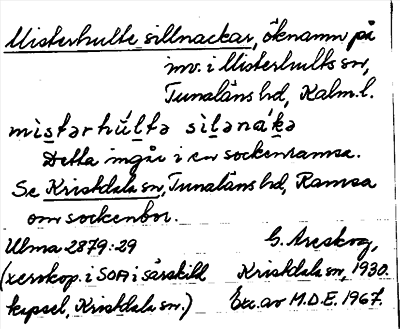 Misterhulte sillnackar, öknamn på
inv. i Misterhults sn,
Tunaläns hd, Kalm. l.
mistərhúltə silənákə
Detta ingår i en sockenramsa.
Se Kristdala sn, Tunaläns hd, Ramsa
om sockenbor.
Ulma 2879:29 G. Areskog,
(xeroxkop. i SOA i särskild Kristdala sn, 1930.
kapsel, Kristdala sn.) Exc. av M.D.E. 1967.